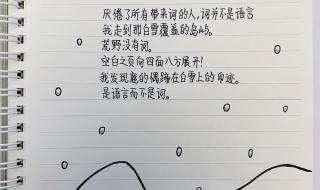 厌倦了所有带来词的人，词并不是语言
我走到那白雪覆盖的岛屿。
荒野没有词。
空白之页向四面八方展开！
我发现麂的偶蹄在白雪上的印迹。
是语言而不是词。